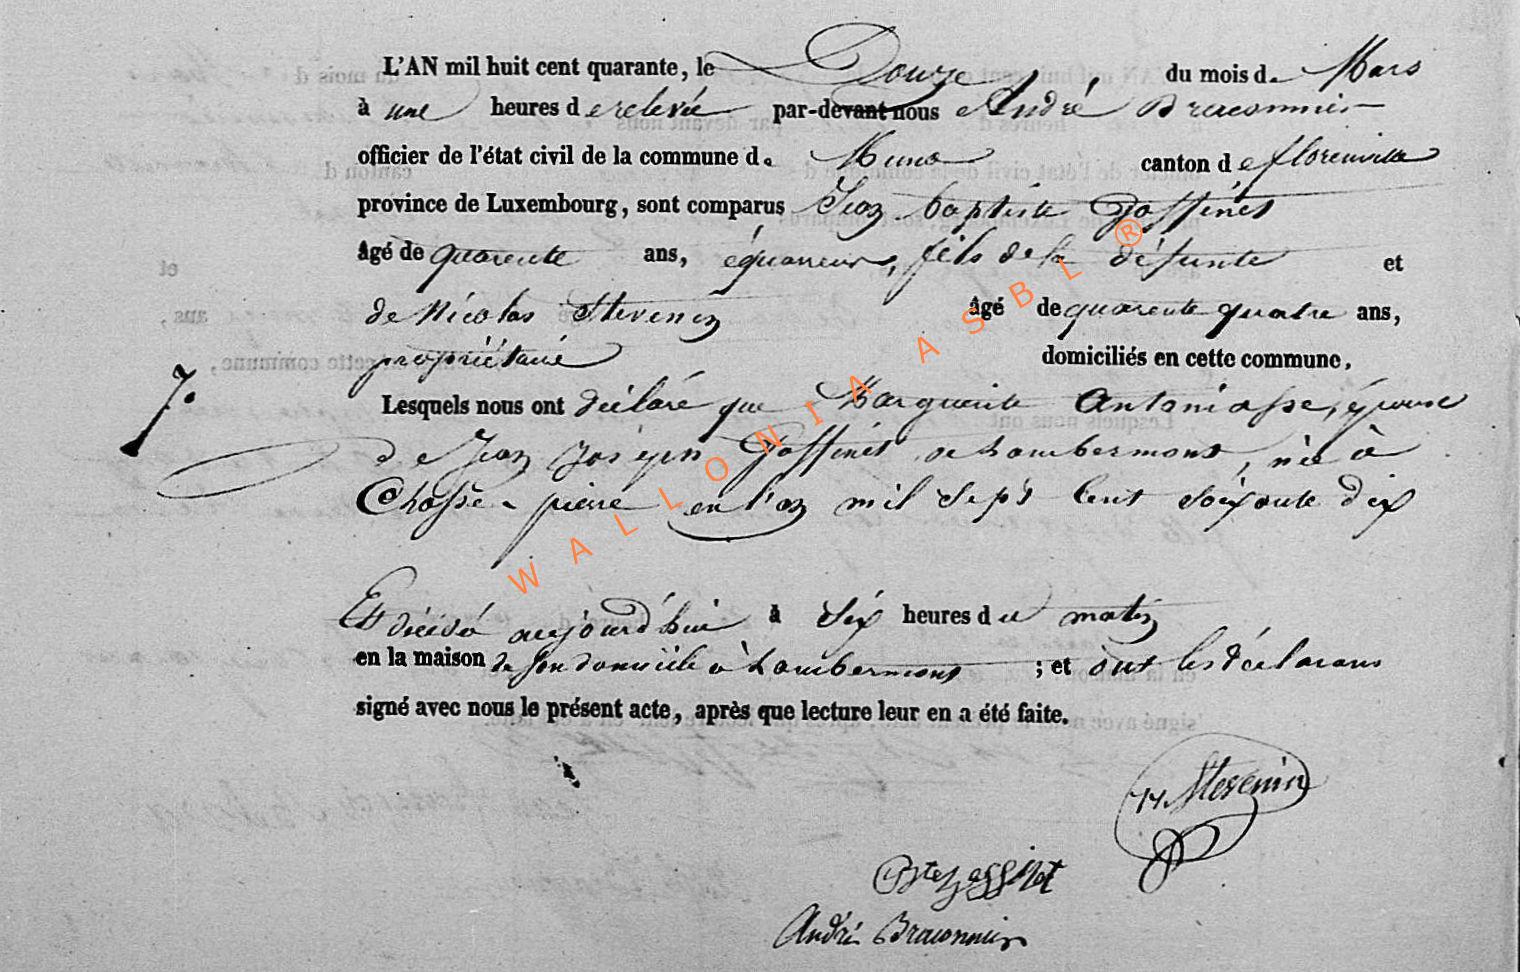 L'AN mil huit cent quarante, le Douze du mois de Mars
à une heures de relevée par-devant nous André Braconnier
officier de l'état civil de la commune de Muno canton de florenville
province de Luxembourg, sont comparus Jean baptiste Goffinet
âgé de quarente ans, équarreur, fils de la défunte et
de Nicolas Stevenin âgé de quarente quatre ans,
propriétaire domiciliés en cette commune.
7.
Lesquels nous ont déclaré que Marguerite Antoniasse, épouse
de Jean Joseph Goffinet de Lambermont, née à
Chasse-pierre en l'an mil sept cent soixante dix
Est décédé aujourd'hui à six heures du matin
en la maison de son domicile à Lambermont ; et ont les déclarans
signé avec nous le présent acte, après que lecture leur en a été faite.
N Stevenin
Bte goffinet
André Braconnier
WALLONIA ASBL ®